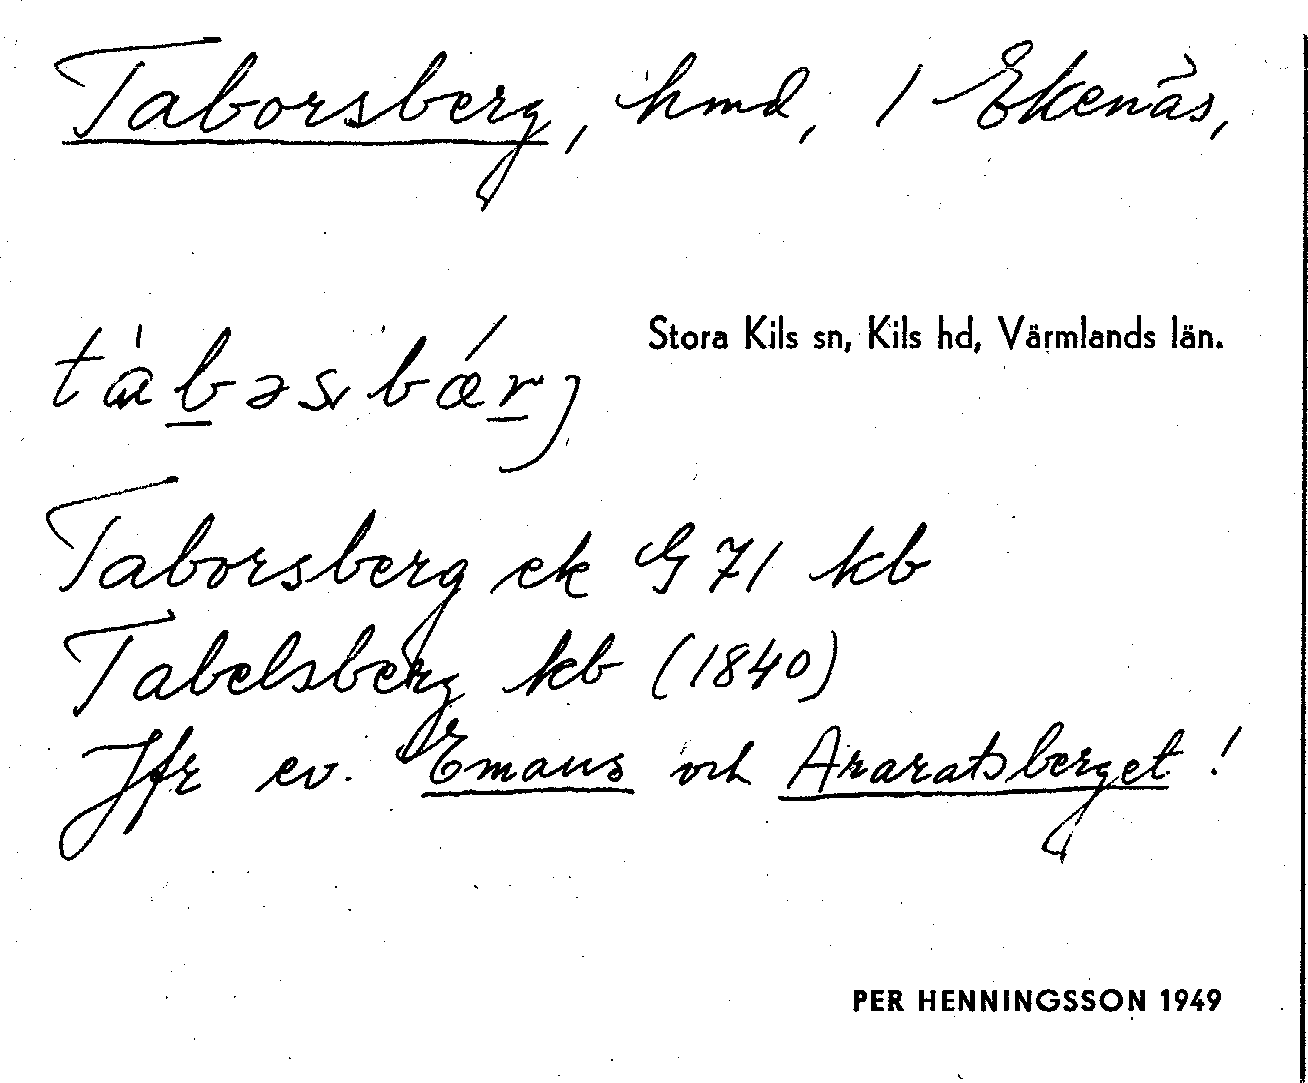 Taborsberg, hmd, 1 Ekenäs,
Stora Kils sn, Kils hd, Värmlands län.
tàbəsbǽrj
Taborsberg ek G 71 kb
Tabelsberg kb (1840)
Jfr ev. Emaus och Araratsberget!
PER HENNINGSSON 1949